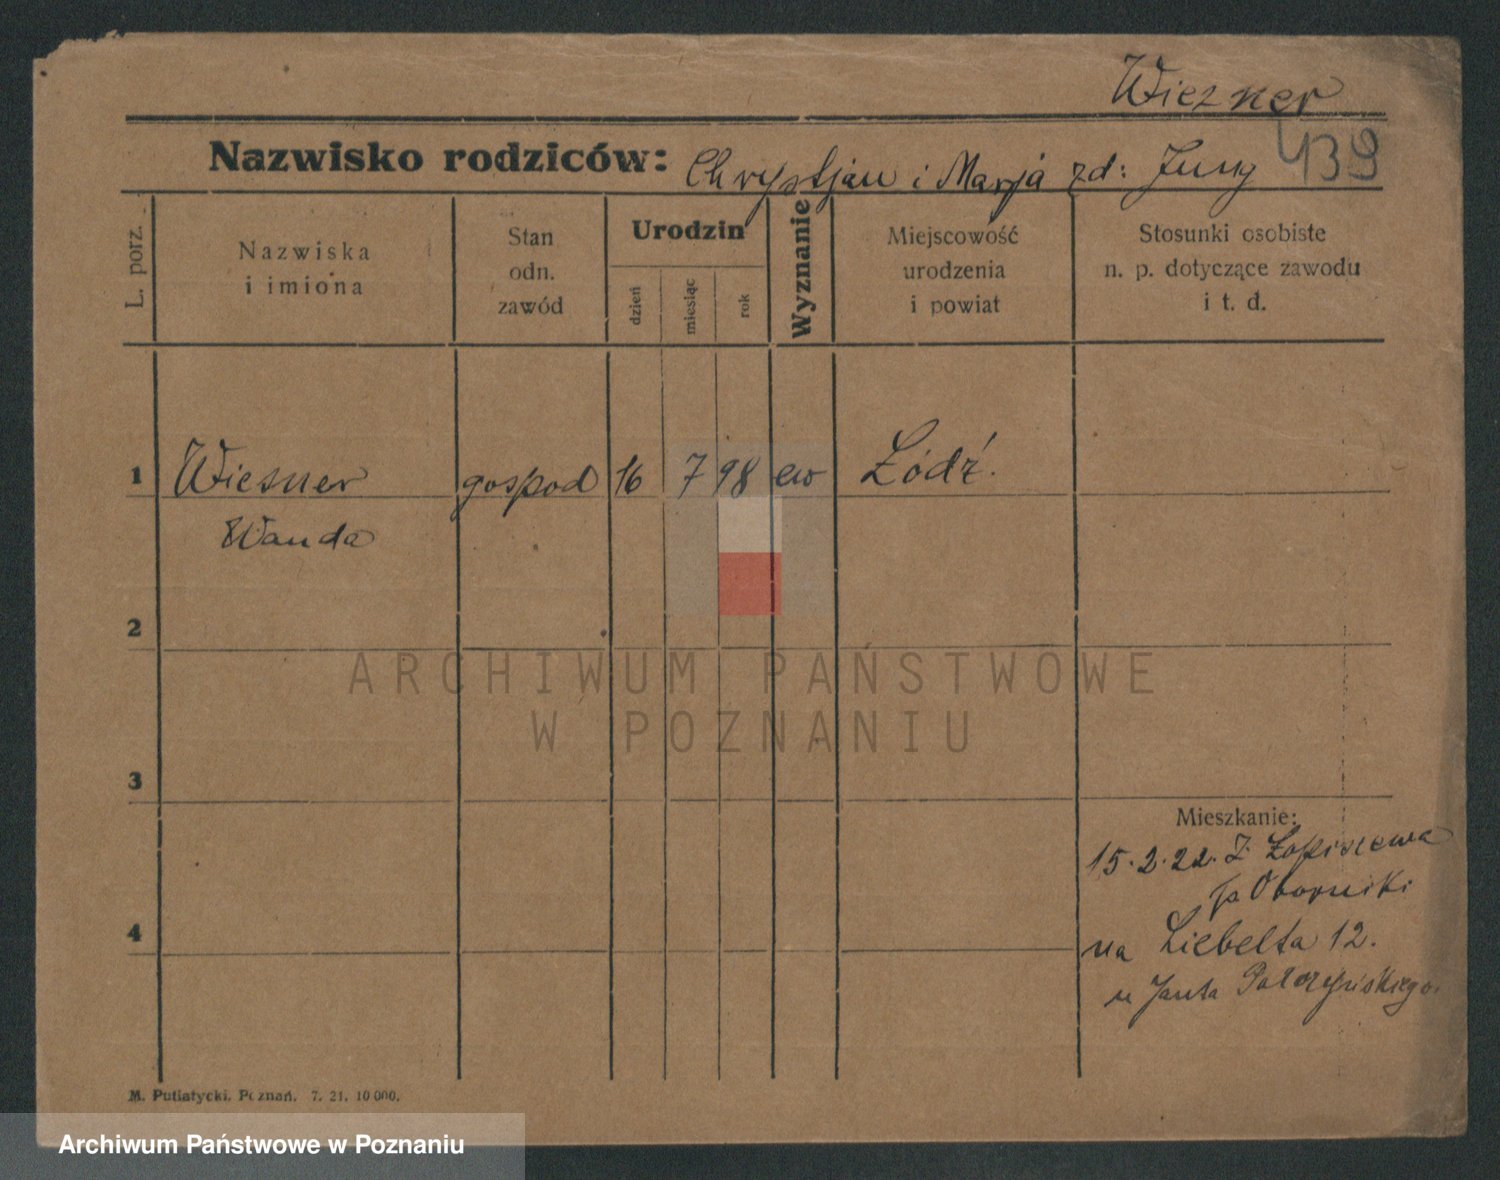 Wiezner
Nazwisko rodziców: Chrystjan i Marja zd: Juny
439
L. porz.
Nazwiska
i imiona
Stan
odn.
zawód
Urodzin
dzień
miesiąc
rok
Wyznanie
Miejscowość
urodzenia
i powiat
Stosunki osobiste
n. p. dotyczące zawodu
i t. d.
1 Wiesner gospod 16 7 98 ew Łódź.
Wanda
2
3
4
ARCHIWUM PAŃSTWOWE
W POZNANIU
Mieszkanie:
15.2.22. Z Łopiszewa
Oborniki
na Liebelta 12.
u Janta Połczyńskiego.
M. Putiatycki. Poznań. 7. 21. 10 000.
Archiwum Państwowe w Poznaniu